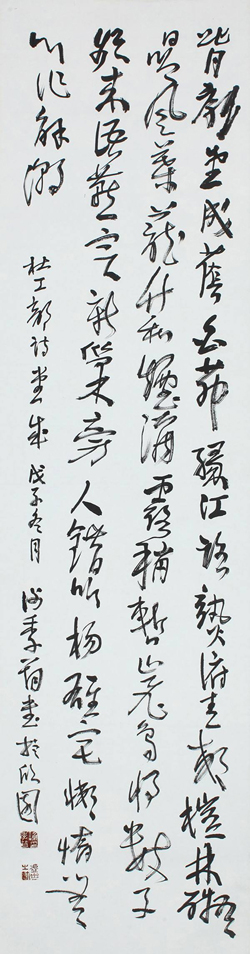 背郭堂成蔭白茅緣江路熟俯青郊榿林礙
日吟風葉籠竹和煙滴露梢暫止飛烏將數子
頻來語燕定新巢旁人錯比楊雄宅懶惰無
心作解嘲
杜工部詩堂成 戊子冬月 書於欣園